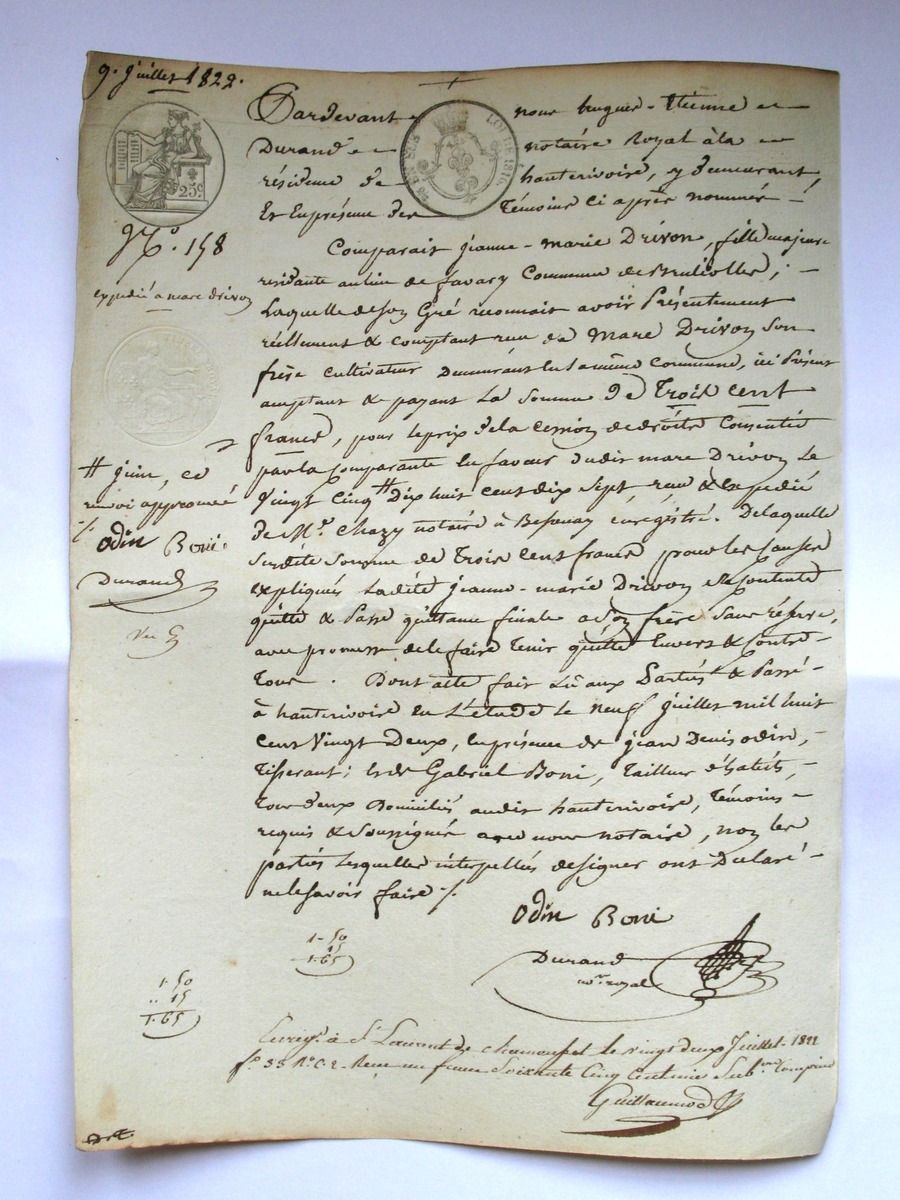 9. juillet 1822.
Pardevant nous hugues-Etienne
Durand notaire Royal à la
résidence de hauterivoire, y demeurant,
Et En présence des Témoins ci après nommés
LOI DE 1816.
25 c.
N.º 158
expédié à marc drivon
Comparait jeanne-marie Drivon, fille majeure
résidante au lieu de favary Commune de Brullioles;
Laquelle de son Gré reconnait avoir Présentement
réellement & comptant reçu de Marc Drivon Son
frère cultivateur Demeurant en la même Commune, ici Présent
acceptant & payant La Somme de Trois cent
francs, pour le prix de la cession de droits Consentie
par la Comparante en faveur dudit marc Drivon Le
Vingt Cinq # Dix huit cent dix Sept reçu & Expédié
de Me. Chazy notaire à Bessenay enrégistré. De laquelle
Surdite Somme de Trois Cent francs pour les causes
expliqués Ladite jeanne-marie Drivon est Contente
quitte & Passe quittance finale a Son frère Sans réserve,
avec promesse de le faire Tenir quitte Envers & Contre
Tous. Dont acte fait Lû aux Parties & Passé
à hauterivoire en L'étude le neuf juillet mil huit
Cent Vingt Deux, en présence de jean Denis odin,
Tisserant; et de Gabriel Boni, Tailleur d'habits,
Tous deux Domiciliés audit hauterivoire, Témoins
requis & Soussignés avec nous notaire, non les
parties Lesquelles interpellées de signer ont Déclaré
ne le savoir faire ./.
# juin, ce
renvoi approuvé
./.
Odin Boni
Durand
Vu
Odin Boni
Durand
nre. royal
1-50
15
1-65
1-50
.. 15
1.65
Enregé. à St. Laurent de chamousset le vingt deux Juillet 1822
fo. 33 Ro. C. 2. Reçu un franc Soixante Cinq Centimes Subon. Comprise
Guillaumod